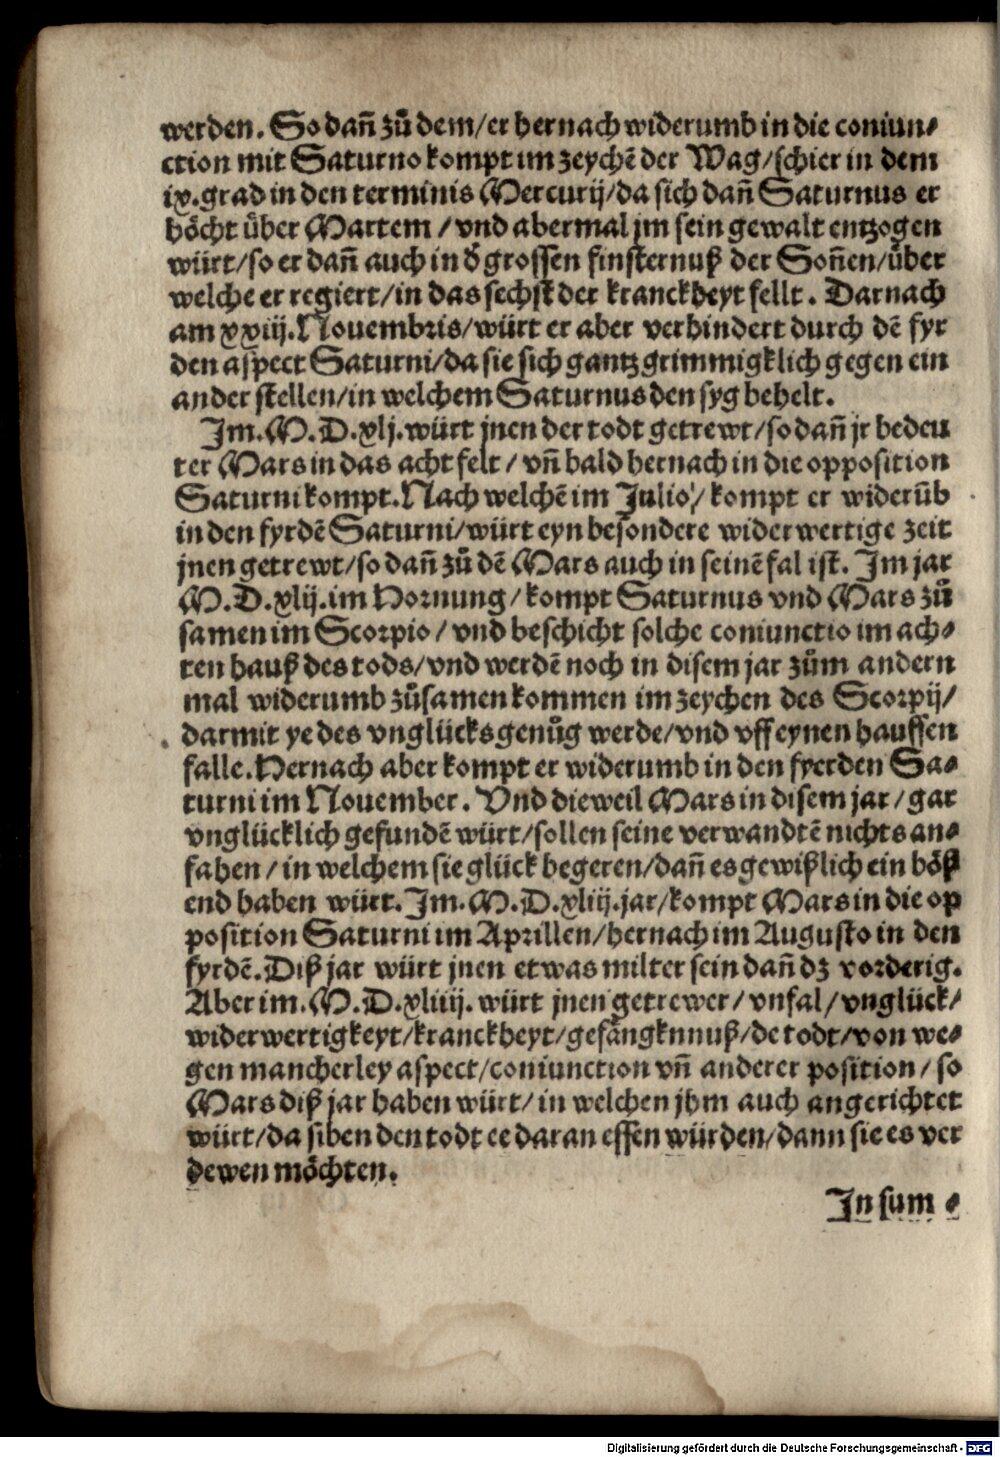 werden. So dañ zů dem/er hernach widerumb in die coniun⸗
ction mit Saturno kompt im zeychẽ der Wag/schier in dem
ix.grad in den terminis Mercurij/da sich dañ Saturnus er
höcht über Martem / vnd abermal jm sein gewalt entzogen
würt/so er dañ auch in d̕ grossen finsternuß der Soñen/über
welche er regiert/in das sechst der kranckheyt fellt. Darnach
am xxiij.Nouembris/würt er aber verhindert durch dẽ fyr
den aspect Saturni/da sie sich gantz grimmigklich gegen ein
ander stellen/in welchem Saturnus den syg behelt.
Im.M.D.xlj.würt jnen der todt getrewt/so dañ jr bedeu
ter Mars in das acht felt / vñ bald hernach in die opposition
Saturni kompt.Nach welchẽ im Julio/ kompt er widerũb
in den fyrdẽ Saturni/würt eyn besondere widerwertige zeit
jnen getrewt/so dañ zů dẽ Mars auch in seinẽ fal ist. Im jar
M.D.xlij.im Hornung/kompt Saturnus vnd Mars zů
samen im Scorpio/ vnd beschicht solche coniunctio im ach⸗
ten hauß des tods/vnd werdẽ noch in disem jar zům andern
mal widerumb zůsamen kommen im zeychen des Scorpij/
darmit ye des vnglücks genůg werde/vnd vff eynen hauffen
falle.Hernach aber kompt er widerumb in den fyerden Sa⸗
turni im Nouember. Vnd dieweil Mars in disem jar/ gar
vnglücklich gefundẽ würt/sollen seine verwandtẽ nichts an⸗
fahen/in welchem sie glück begeren/dañ es gewißlich ein böß
end haben würt.Im.M.D.xliij.jar/kompt Mars in die op
position Saturni im Aprillen/hernach im Augusto in den
fyrdẽ.Diß jar würt jnen etwas milter sein dañ dz vorderig.
Aber im.M.D.xliiij. würt jnen getrewet/vnfal/vnglück/
widerwertigkeyt/kranckheyt/gefängknnuß/de todt/von we⸗
gen mancherley aspect/coniunction vñ anderer position/ so
Mars diß jar haben würt/in welchen jhm auch angerichtet
würt/da si hen den todt ee daran essen würden/dann sie es ver
dewen möchten.
In sum⸗
Digitalisierung gefördert durch die Deutsche Forschungsgemeinschaft - DFG